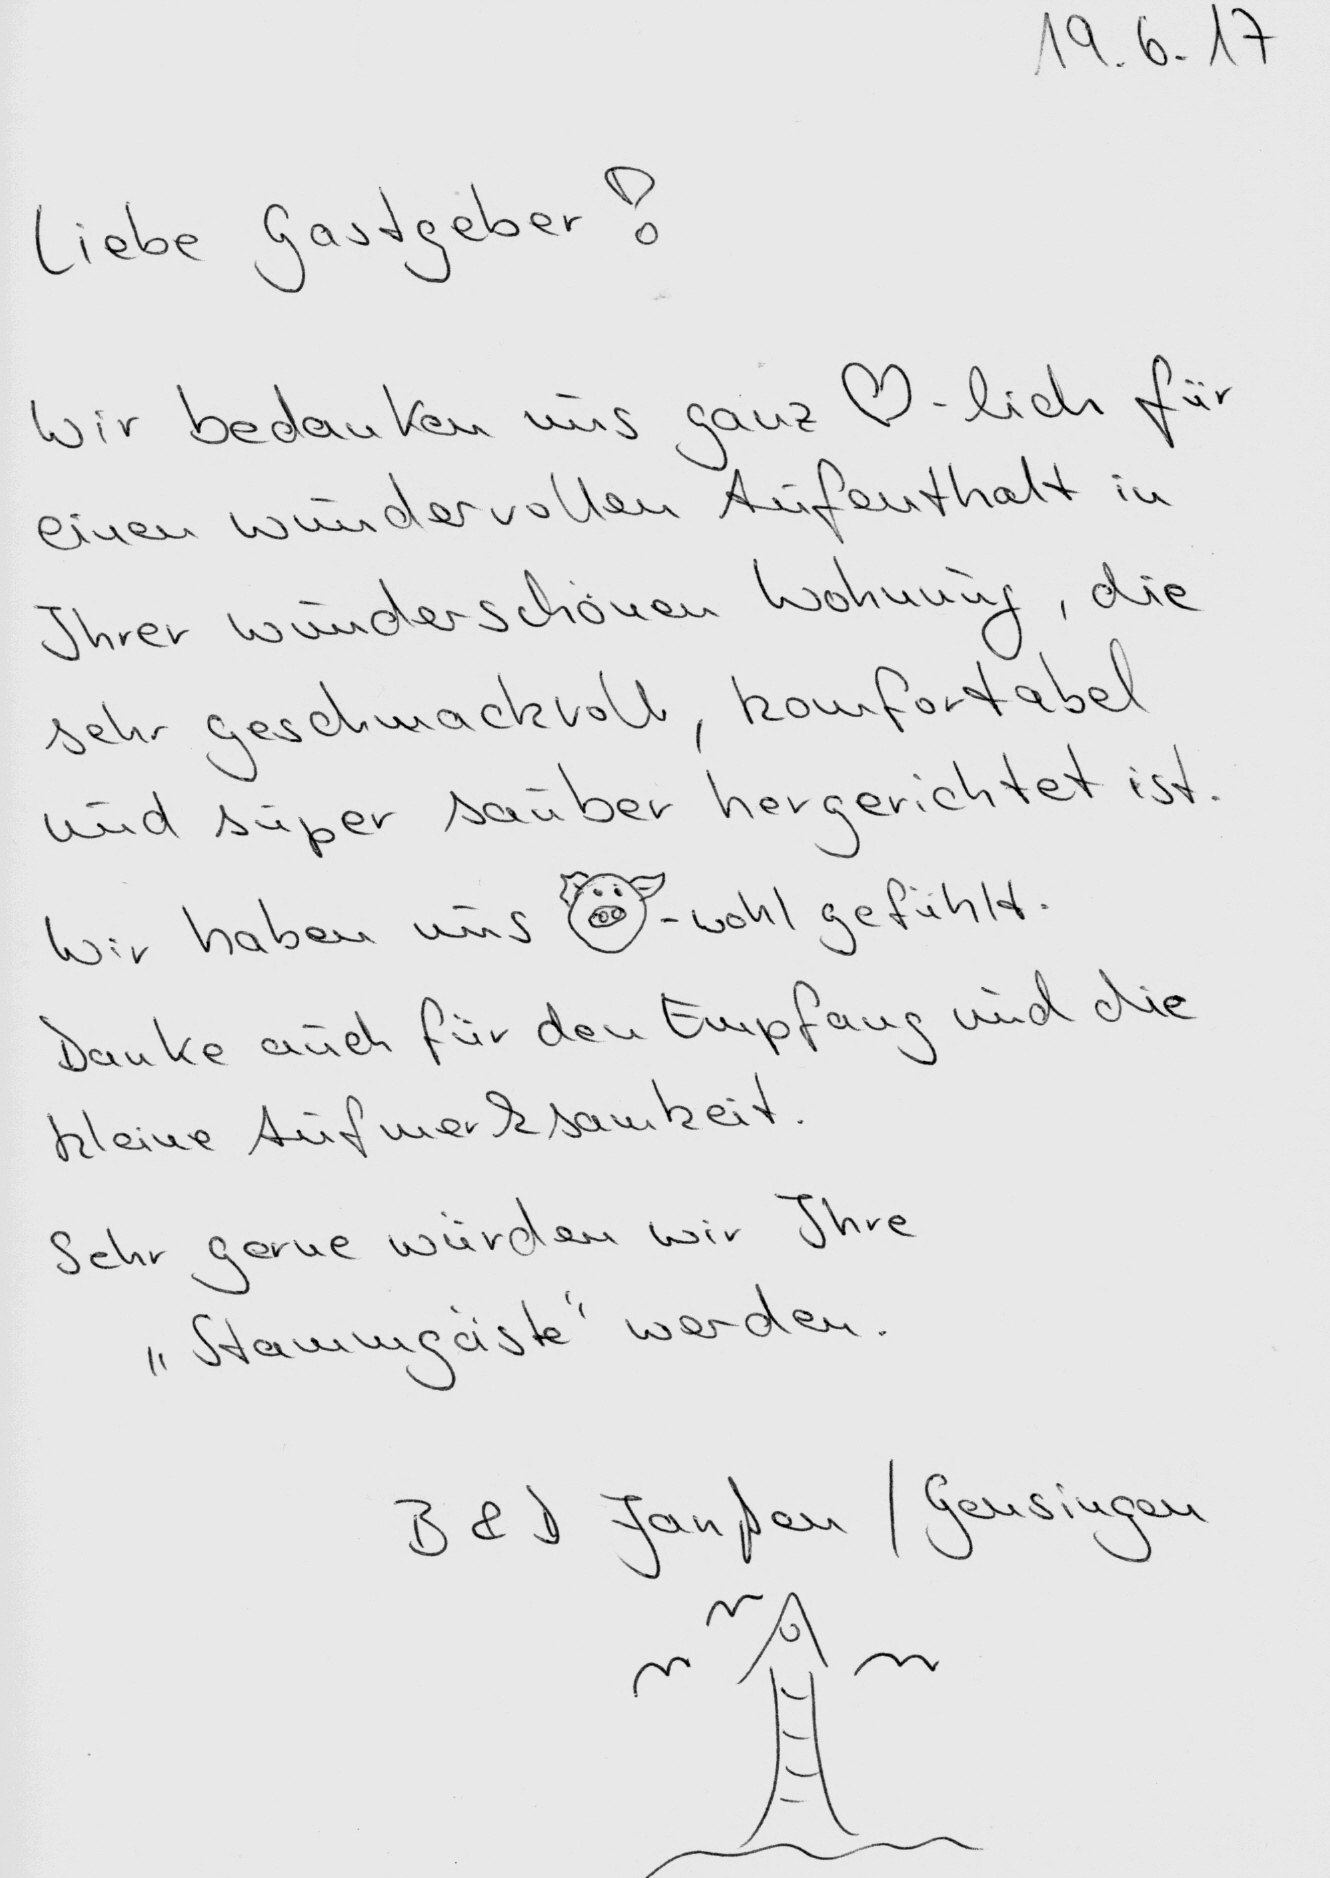 19.6.17
Liebe Gastgeber!
Wir bedanken uns ganz ♡-lich für
einen wundervollen Aufenthalt in
Ihrer wunderschönen Wohnung, die
sehr geschmackvoll, komfortabel
und super sauber hergerichtet ist.
Wir haben uns 🐷-wohl gefühlt.
Danke auch für den Empfang und die
kleine Aufmerksamkeit.
Sehr gerne würden wir Ihre
„Stammgäste“ werden.
B & D Janßen / Gensingen